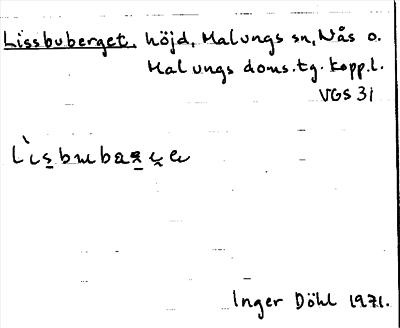 Lissbuberget, höjd, Malungs sn, Nås o.
Malungs doms.tg. Kopp.l.
VGS 31
Inger Döhl 1971.